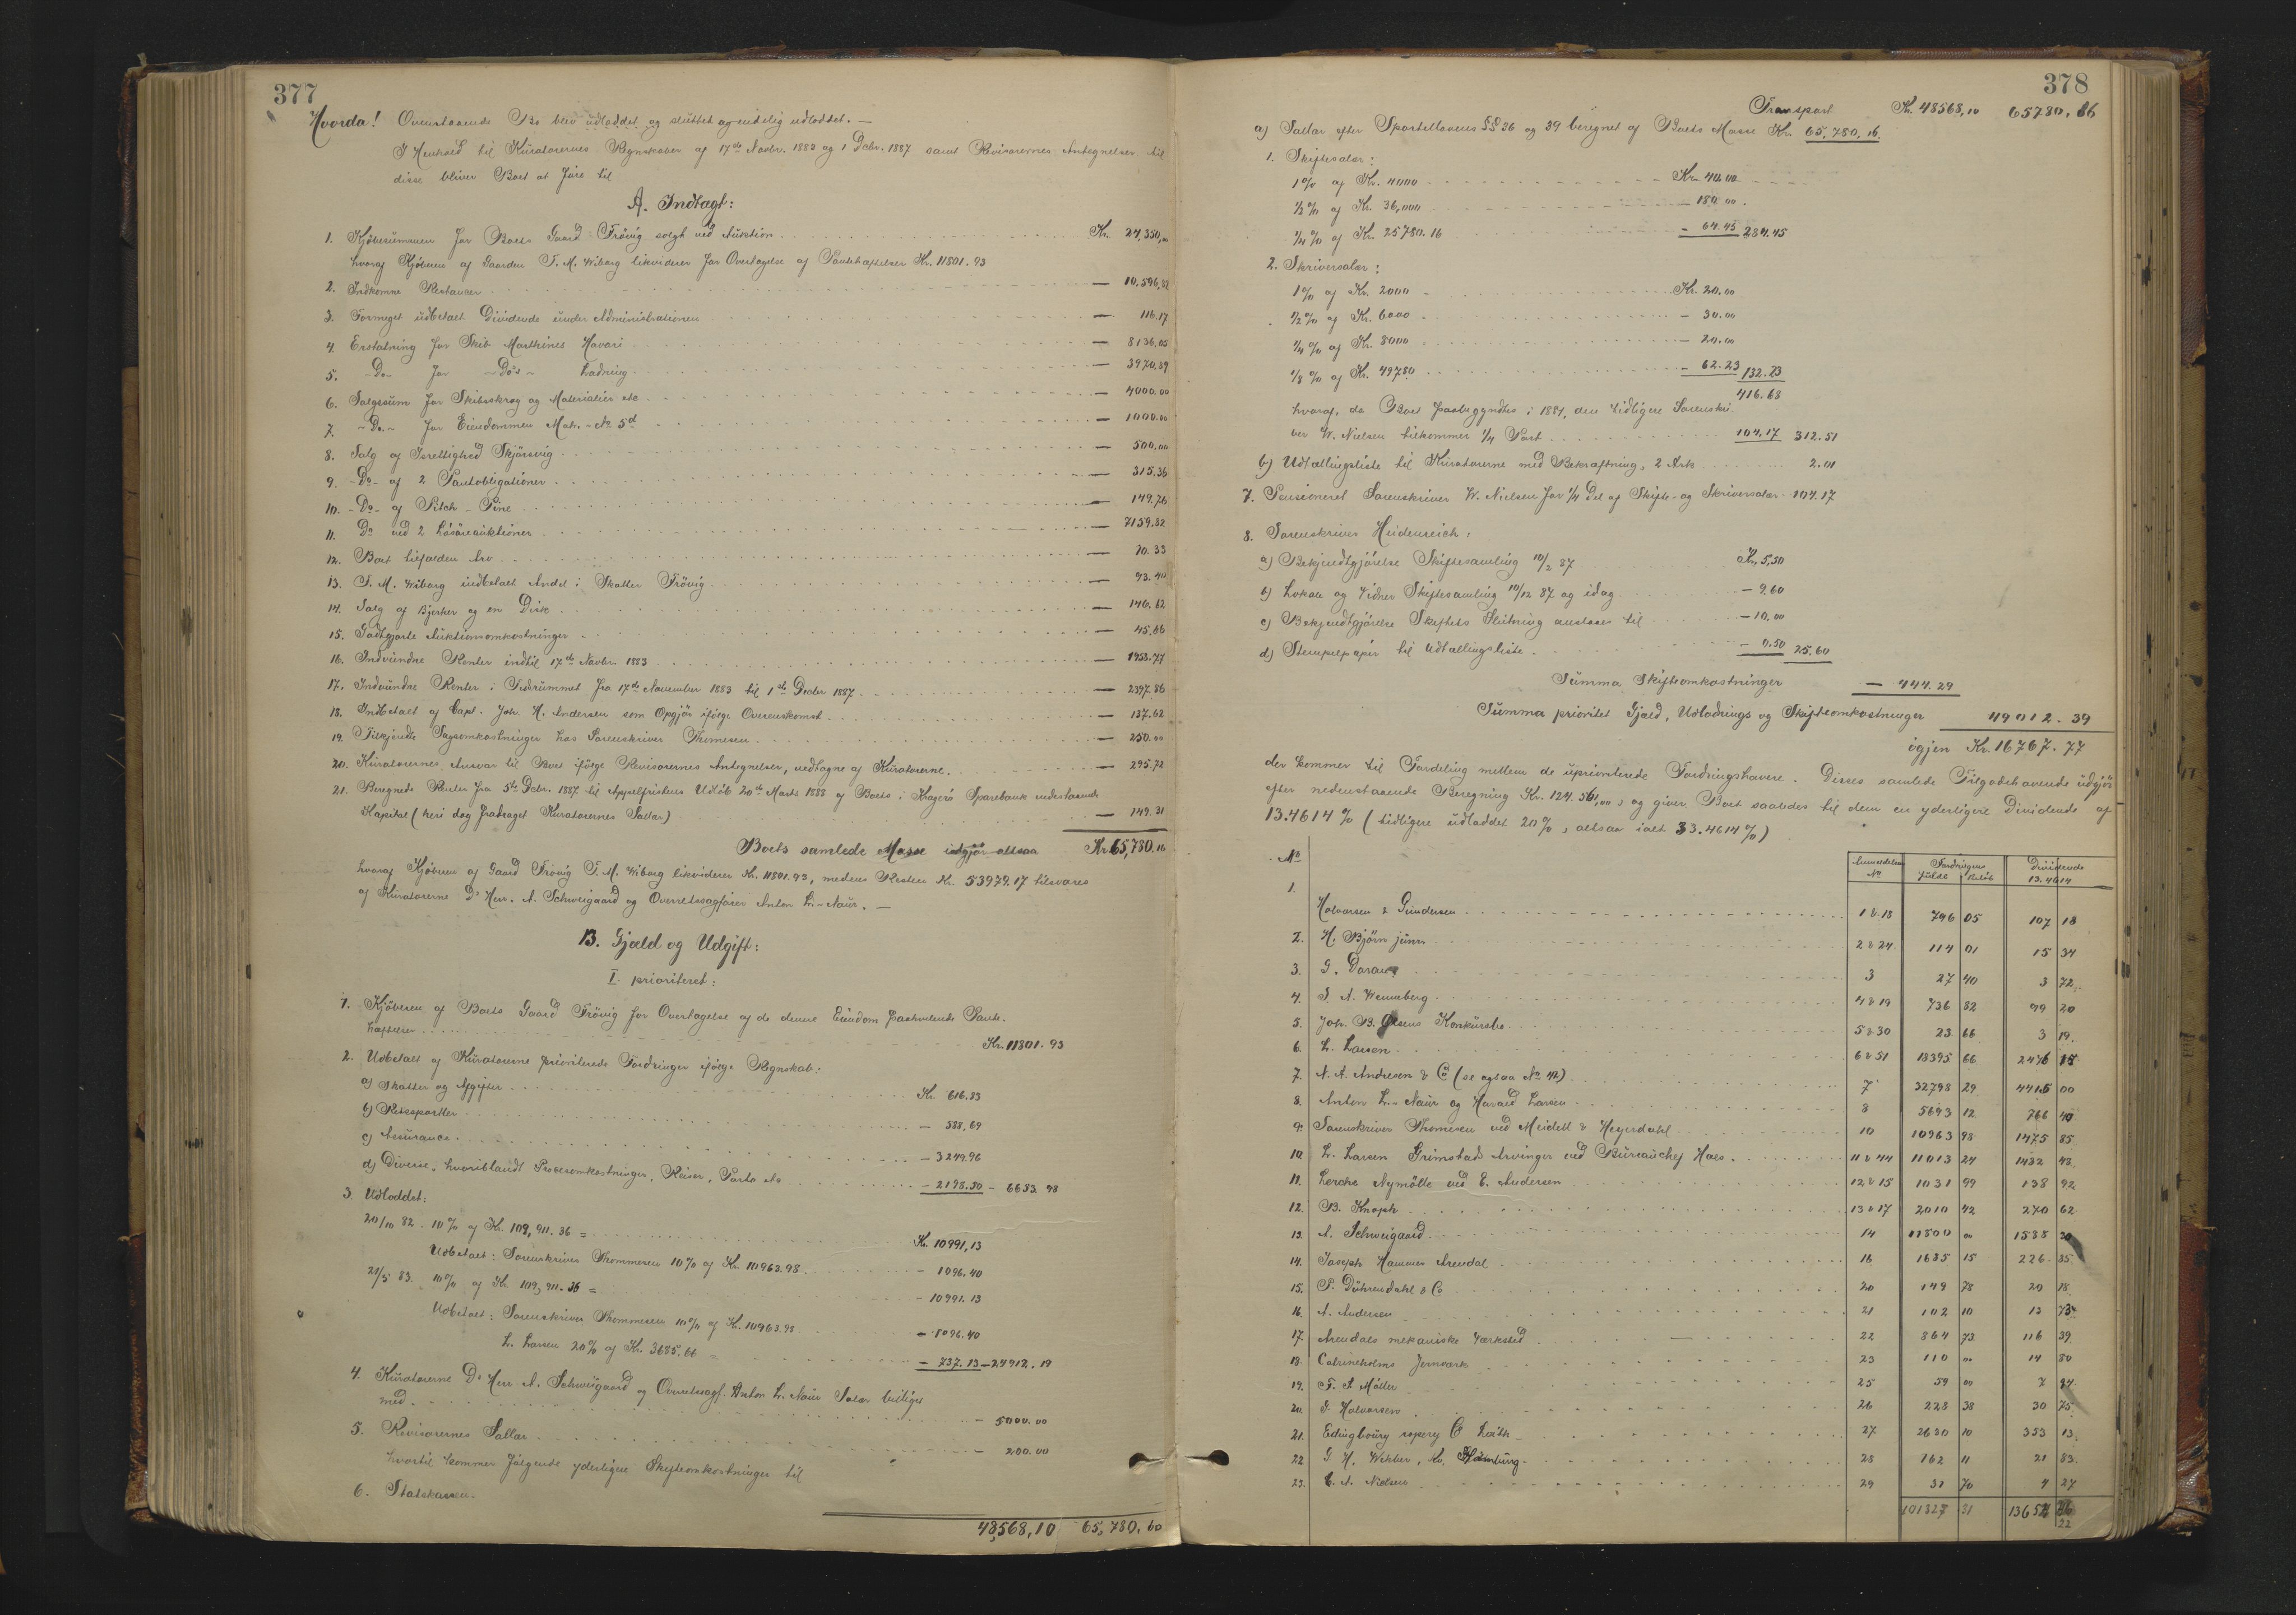 377
Hvorda! Ovenstaaende Bo blev udloddet og sluttet og endelig udloddet. —
I Henhold til Kuratorernes Regnskaber af 17de Novbr. 1883 og 1 Dcbr. 1887 samt Revisorernes Antegnelser til
disse bliver Boet at føre til
A. Indtægt:
1. Kjöbesummen for Boets Gaard Frövig solgt ved Auktion Kr. 24,350,00
hvoraf Kjöberen af Gaarden T. M. Wiborg likviderer for Overtagelse af Pantehæftelser Kr. 11801.93
2. Indkomne Restancer — 10,596,32
3. Formeget udbetalt Dividende under Administrationen — 116.17
4. Erstatning for Skib Marthines Havari — 8136,05
5. -Do- for -Do's- Ladning — 3970,89
6. Salgssum for Skibsskrog og Materialier etc — 4000.00
7. -Do.- for Eiendommen Matr.-No 5d — 1000.00
8. Salg af Isrettighed Skjörsvig — 500,00
9. -Do- af 2 Pantobligationer — 315,36
10. -Do- af Pitch-Pine — 149.76
11. Do ved 2 Lösöreauktioner — 7159.82
12. Boet tilfalden Arv — 70.33
13. T. M. Wiborg indbetalt Andel i Skatter Frövig — 93.40
14. Salg af Bjerker og en Disk — 146.62
15. Godtgjorte Auktionsomkostninger — 45.66
16. Indvundne Renter indtil 17de Novbr. 1883 — 1958.77
17. Indvundne Renter i Tidsrummet fra 17de November 1883 til 1ste Decbr 1887 — 2397.86
18. Indbetalt af Capt. Joh. H. Andersen som Opgjör ifölge Overenskomst — 137.62
19. Tilkjendte Sagsomkostninger hos Sorenskriver Thomesen — 250.00
20. Kuratorernes Ansvar til Boet ifölge Revisorernes Antegnelser, vedtagne af Kuratorerne — 295.72
21. Beregnede Renter fra 5te Dcbr. 1887 til Appelfristens Udlöb 20de Marts 1888 af Boets i Kragerö Sparebank indestaaende
Kapital (heri dog fradraget Kuratorernes Sallar) — 149.31
Boets samlede Masse udgjör altsaa Kr 65,780.16
hvoraf Kjöberen af Gaard Frövig T. M. Wiborg likviderer Kr. 11801.93, medens Resten Kr. 53979.17 tilsvares
af Kuratorerne D'Hrr. A. Schweigaard og Overretssagförer Anton L.-Naur. —
B. Gjæld og Udgift:
I. prioriteret:
1. Kjöberen af Boets Gaard Frövig for Overtagelse af de denne Eiendom paahvilende Pante-
hæftelser Kr. 11801.93
2. Udbetalt af Kuratorerne prioriterede Fordringer ifölge Regnskab:
a) Skatter og Afgifter Kr. 616.83
b) Retssportler — 588,69
c) Assurance — 3249.96
d) Diverse, hvoriblandt Procesomkostninger, Reiser, Porto etc — 2198.50 — 6653.98
3. Udloddet:
20/10 82. 10% af Kr. 109,911.36 = Kr. 10991,13
Udbetalt: Sorenskriver Thommesen 10% af Kr. 10963.98 — 1096.40
21/5 83. 10% af Kr. 109,911.36 = — 10991.13
Udbetalt: Sorenskriver Thommesen 10% af Kr. 10963.98 — 1096.40
L. Larsen 20% af Kr. 3685.66 = — 737.13 — 24912.19
4. Kuratorerne D'Herr A. Schweigaard og Overretssagf. Anton L. Naur Salær billiges
med — 5000.00
5. Revisorernes Sallar — 200.00
hvortil kommer fölgende yderligere Skifteomkostninger til
6. Statskassen.
48,568,10 65,780,60
378
Transport Kr. 48568,10 65780,66
a) Sallar efter Sportellovens §§ 36 og 39 beregnet af Boets Masse Kr. 65,780,16.
1. Skiftesalær:
1% af Kr. 4000 Kr. 40.00
1/2% af Kr. 36,000 — 180.00.
1/4% af Kr. 25780.16 — 64.45 284.45
2. Skriversalær:
1% af Kr. 2000 Kr. 20.00
1/2% af Kr. 6000 — 30.00
1/4% af Kr. 8000 — 20.00
1/8% af Kr. 49780 — 62.23 132.23
416.68
hvoraf, da Boet paabegyndtes i 1881, den tidligere Sorenskri-
ver W. Nielsen tilkommer 1/4 Part 104,17 312.51
b) Udtællingsliste til Kuratorerne med Bekræftning, 2 Ark 2.01
7. Pensioneret Sorenskriver W. Nielsen for 1/4 Del af Skifte- og Skriversalær 104.17
8. Sorenskriver Heidenreich:
a) Bekjendtgjörelse Skiftesamling 10/2 87 Kr. 5,50
b) Lokale og Vidner Skiftesamling 10/12 87 og idag — 9.60
c) Bekjendtgjörelse Skiftets Slutning ansættes til — 10,00
d) Stempelpapir til Udtællingsliste — 0.50 25.60
Summa Skifteomkostninger — 444.29
Summa prioritet Gjæld, Udlodnings og Skifteomkostninger 49012.39
igjen Kr. 16767.77
der kommer til Fordeling mellem de uprioriterede Fordringshavere. Disses samlede Tilgodehavende udgjör
efter nedenstaaende Beregning Kr. 124.561,00, og giver Boet saaledes til dem en yderligere Dividende af
13.4614% (tidligere udloddet 20%, altsaa ialt 33.4614%)
No Anmeldelsens No Fordringens fulde Belöb Dividende 13.4614
1. Halvorsen & Gundersen 1 & 18 796 05 107 18
2. H. Björn junr. 2 & 24 114 01 15 34
3. G. 3 27 40 3 72
4. S. A. Wenneberg 4 & 19 736 82 99 20
5. Joh. B. Olsens Konkursbo 5 & 30 23 66 3 19.
6. L. Larsen 6 & 51 18395 66 2476 18
7. N. A. Andresen & Co (se ogsaa No 42) 7 32798 29 4415 00
8. Anton L.-Naur og Harald Larsen 8 5693 12 766 40
9. Sorenskriver Thomesen ved Meidell & Heyerdahl 10 10963 98 1475 85
10. L. Larsen Grimstads Arvinger ved Bureauchef Haes 11 & 44 11013 24 1482 48
11. Lerche Nymölle ved E. Andersen 12 & 15 1031 99 138 92
12. B. Knoph 13 & 17 2010 42 270 62
13. A. Schweigaard 14 11800 00 1588 20
14. Joseph Hammer Arendal 16 1685 15 226 85
15. P. Dührendahl & Co 20 149 78 20 18
16. A. Andersen 21 102 10 13 73
17. Arendals mekaniske Værksted 22 864 73 116 39
18. Catrineholms Jernværk 23 110 00 14 80
19. F. P. Möller 25 59 00 7 94
20. G. Halvorsen 26 228 38 30 75
21. Edingboury ropery Co Leith 27 2630 10 353 13
22 G. H. Wekber, Hamburg 28 162 11 21 83
23. C. A. Nielsen 29 31 70 4 27
101327 31 13652 22